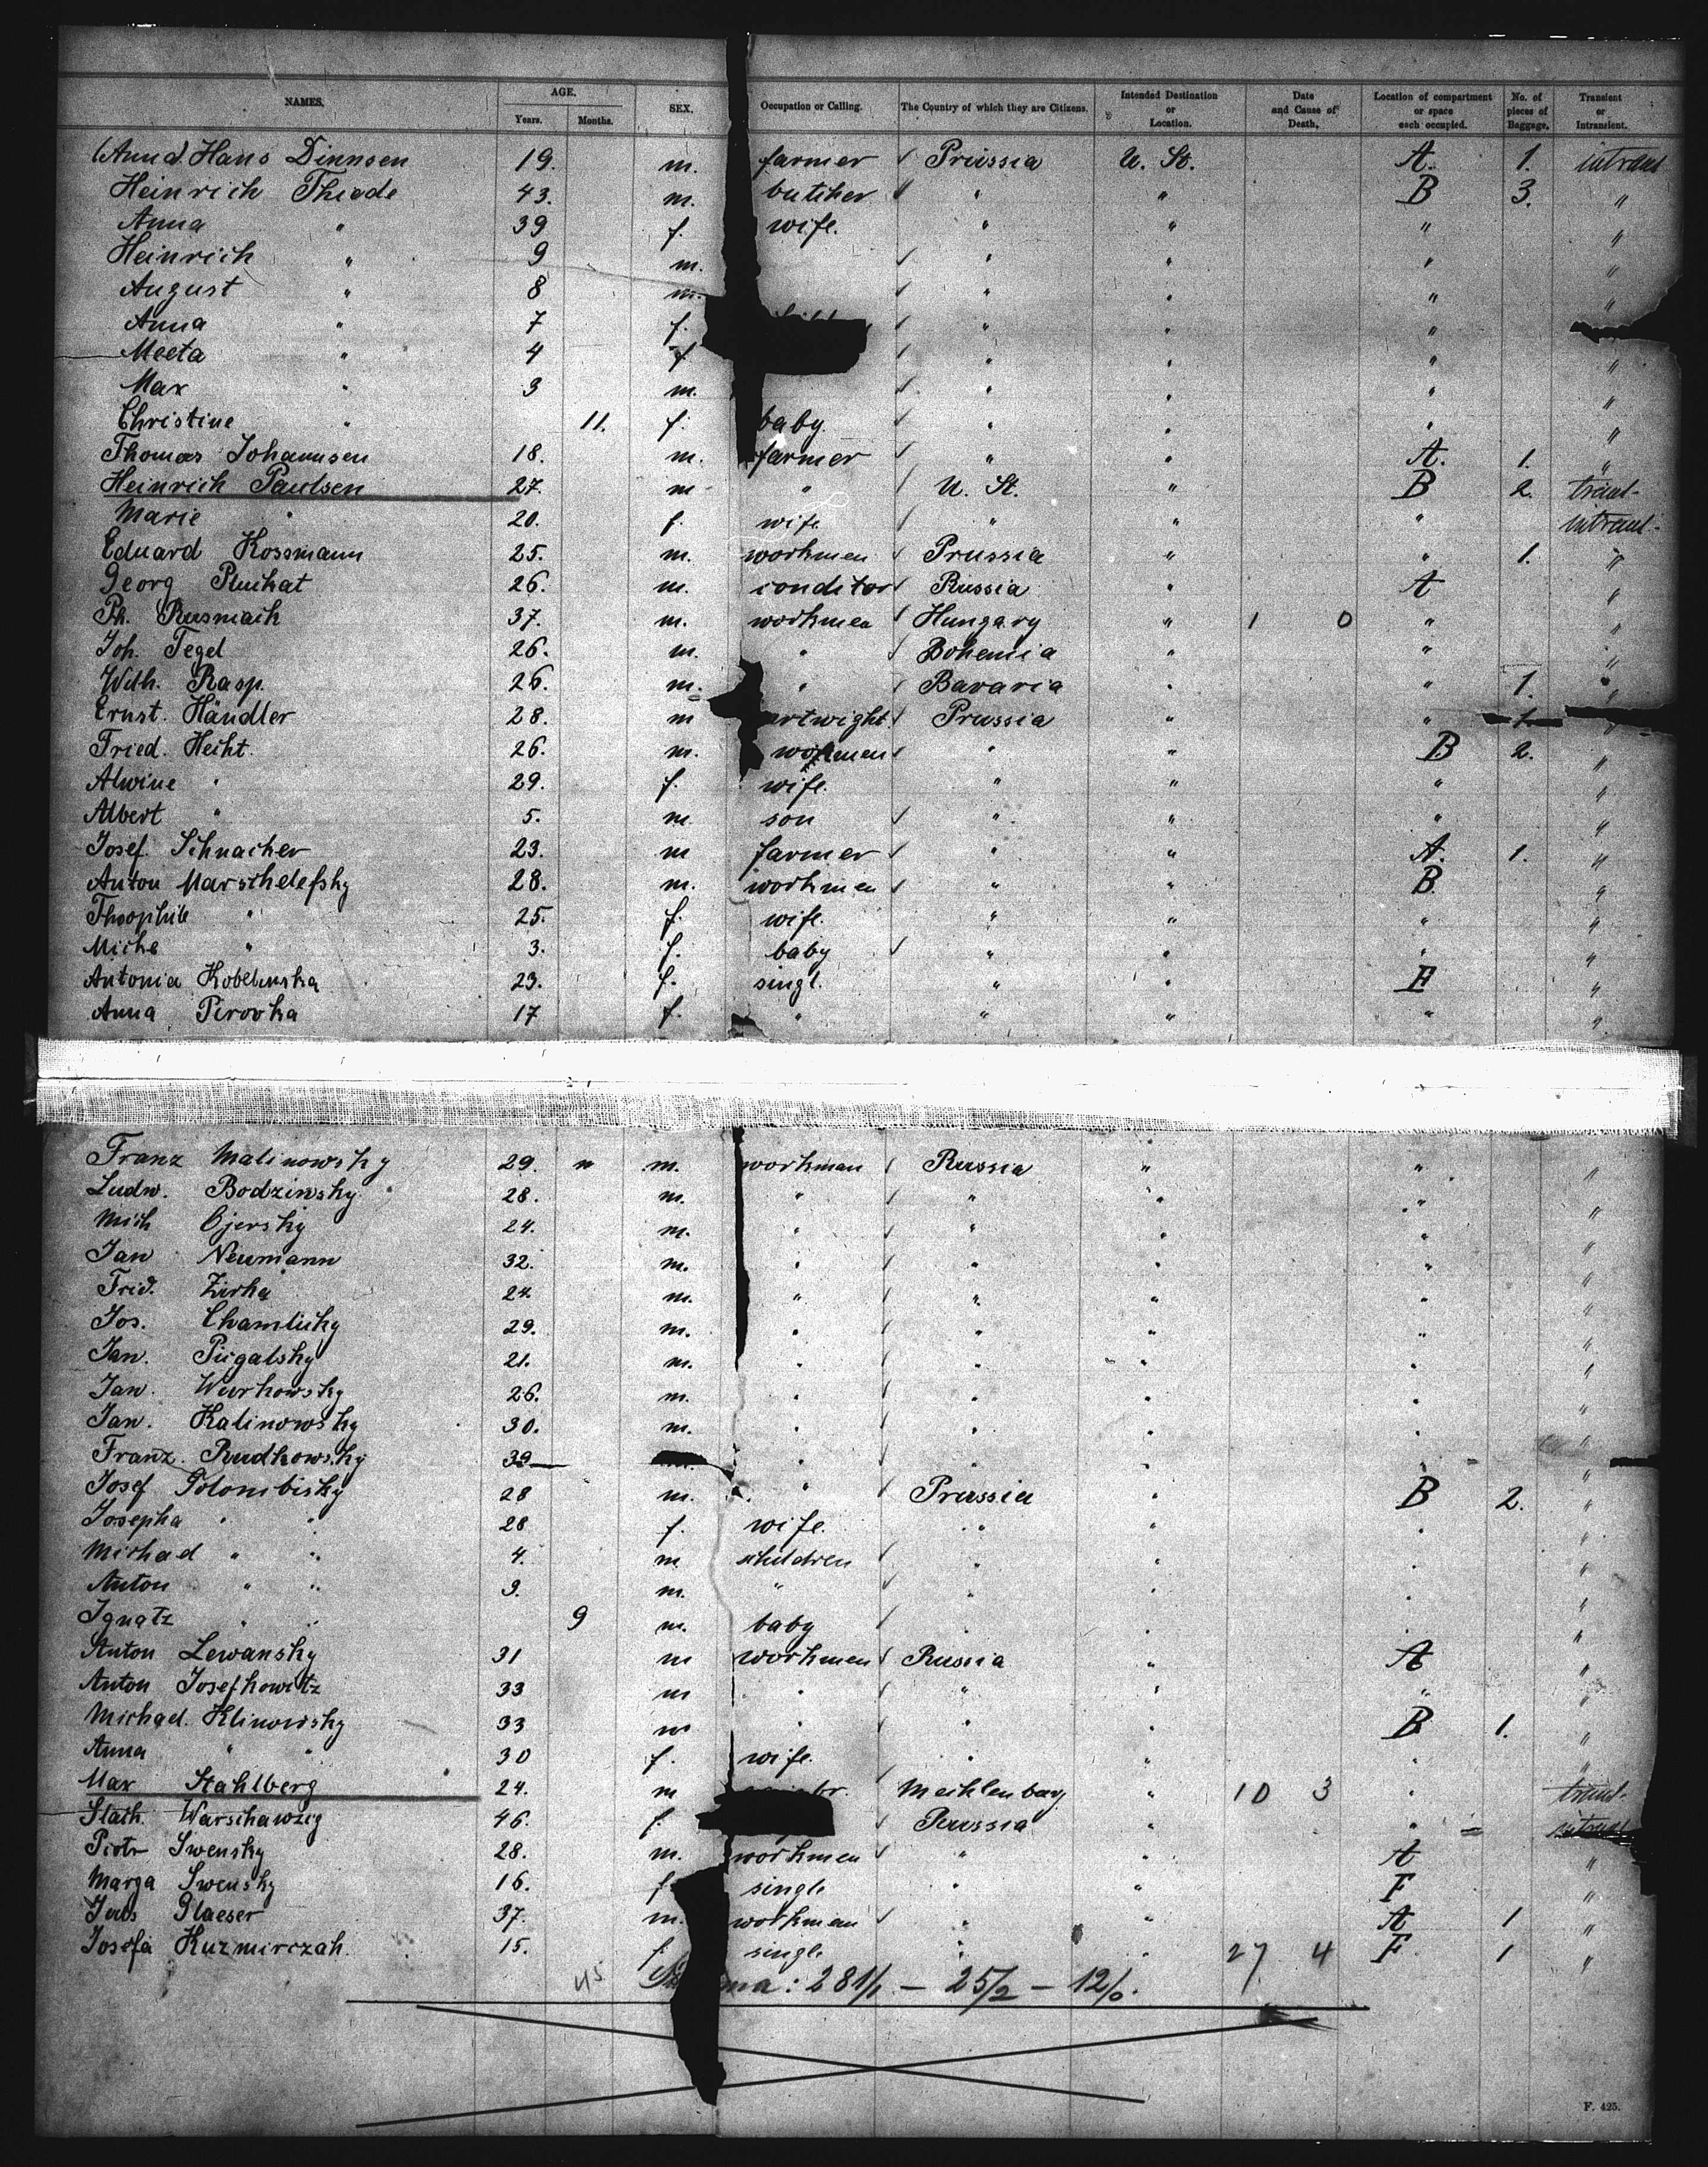 NAMES. AGE. Years. Months. SEX. Occupation or Calling. The Country of which they are Citizens. Intended Destination or Location. Date and Cause of Death. Location of compartment or space each occupied. No. of pieces of Baggage. Transient or Intransient.
Hans Dinnsen 19. m. farmer √ Prussia U. St. A. 1. intrans
Heinrich Thiede 43. m. butcher √ " " B 3. "
Anna " 39 f. wife. " " " "
Heinrich " 9 m. √ " " " "
August " 8 m. √ " " " "
Anna " 7 f. √ " " "
Meeta " 4 f √ " " " "
Max " 3 m. √ " " " "
Christine " 11. f. baby √ " " " "
Thomas Johannsen 18. m. farmer √ " " A. 1. "
Heinrich Paulsen 27. m " √ U. St. " B 2. trans-
Marie " 20. f. wife √ " " " intrans-
Eduard Kossmann 25. m. workmen √ Prussia " " 1. "
Georg Pluikat 26. m. conditor √ Russia " A "
Ph. Rusmaik 37. m. workmen √ Hungary " 1 0 " "
Joh. Tegel 26. m. " √ Bohemia " " "
Wilh. Rasp. 26. m. " √ Bavaria " " 1. "
Ernst. Händler 28. m √ Prussia " " 1. "
Fried. Hecht. 26. m. workmen √ " " B 2. "
Alwine " 29. f. wife. " " " "
Albert " 5. m. son √ " " " "
Josef. Schnacher 23. m farmer √ " " A. 1. "
Anton Marschelefsky 28. m. workmen √ " " B. "
Theophile " 25. f. wife. " " " "
Miche " 3. f. baby √ " " " "
Antonia 23. f. singl. " " F "
Anna Pirovka 17 f. " " " " "
Franz Malinowsky 29. m. workman √ Russia " " "
Ludw. Bodzinsky. 28. m. " √ " " " "
Mich Ojersky 24. m. " √ " " " "
Jan Neumann 32. m. " √ " " " "
Frid. Zirka 24 m. " √ " " " "
Jos. Chamlicky 29. m. " √ " " " "
Jan. Pugalsky 21. m. " √ " " " "
Jan. Wurkowsky 26. m. " √ " " " "
Jan. Kalinowsky 30. m. " √ " " " "
Franz. Rudkowsky 39 " √ " " " "
Josef Golombisky 28 m. " √ Prussia " B 2. "
Josepha " " 28 f. wife. " " " "
Michael " " 4. m children √ " " " "
Anton " " 3. m. " √ " " " "
Ignatz " " 9 m. baby √ " " " "
Anton Lewansky 31 m workmen √ Russia " A "
Anton Josefkowitz 33 m " √ " " " "
Michael. Klinowsky 33 m " √ " " B 1. "
Anna " " 30 f. wife. " " " "
Max Stahlberg 24. m Mecklenburg " 10 3 " trans-
Warschawzig 46. f. √ Prussia " " intrans
Piotr Swensky 28. m. workmen √ " " A "
Marga Swensky 16. f single " " F "
Glaeser 37. m. workman √ " " A 1 "
Josefa Kuzmirczak. 15. f. single " " 27 4 F 1 "
45 Summa: 281/1 – 25/2 – 12/0.
F. 425.